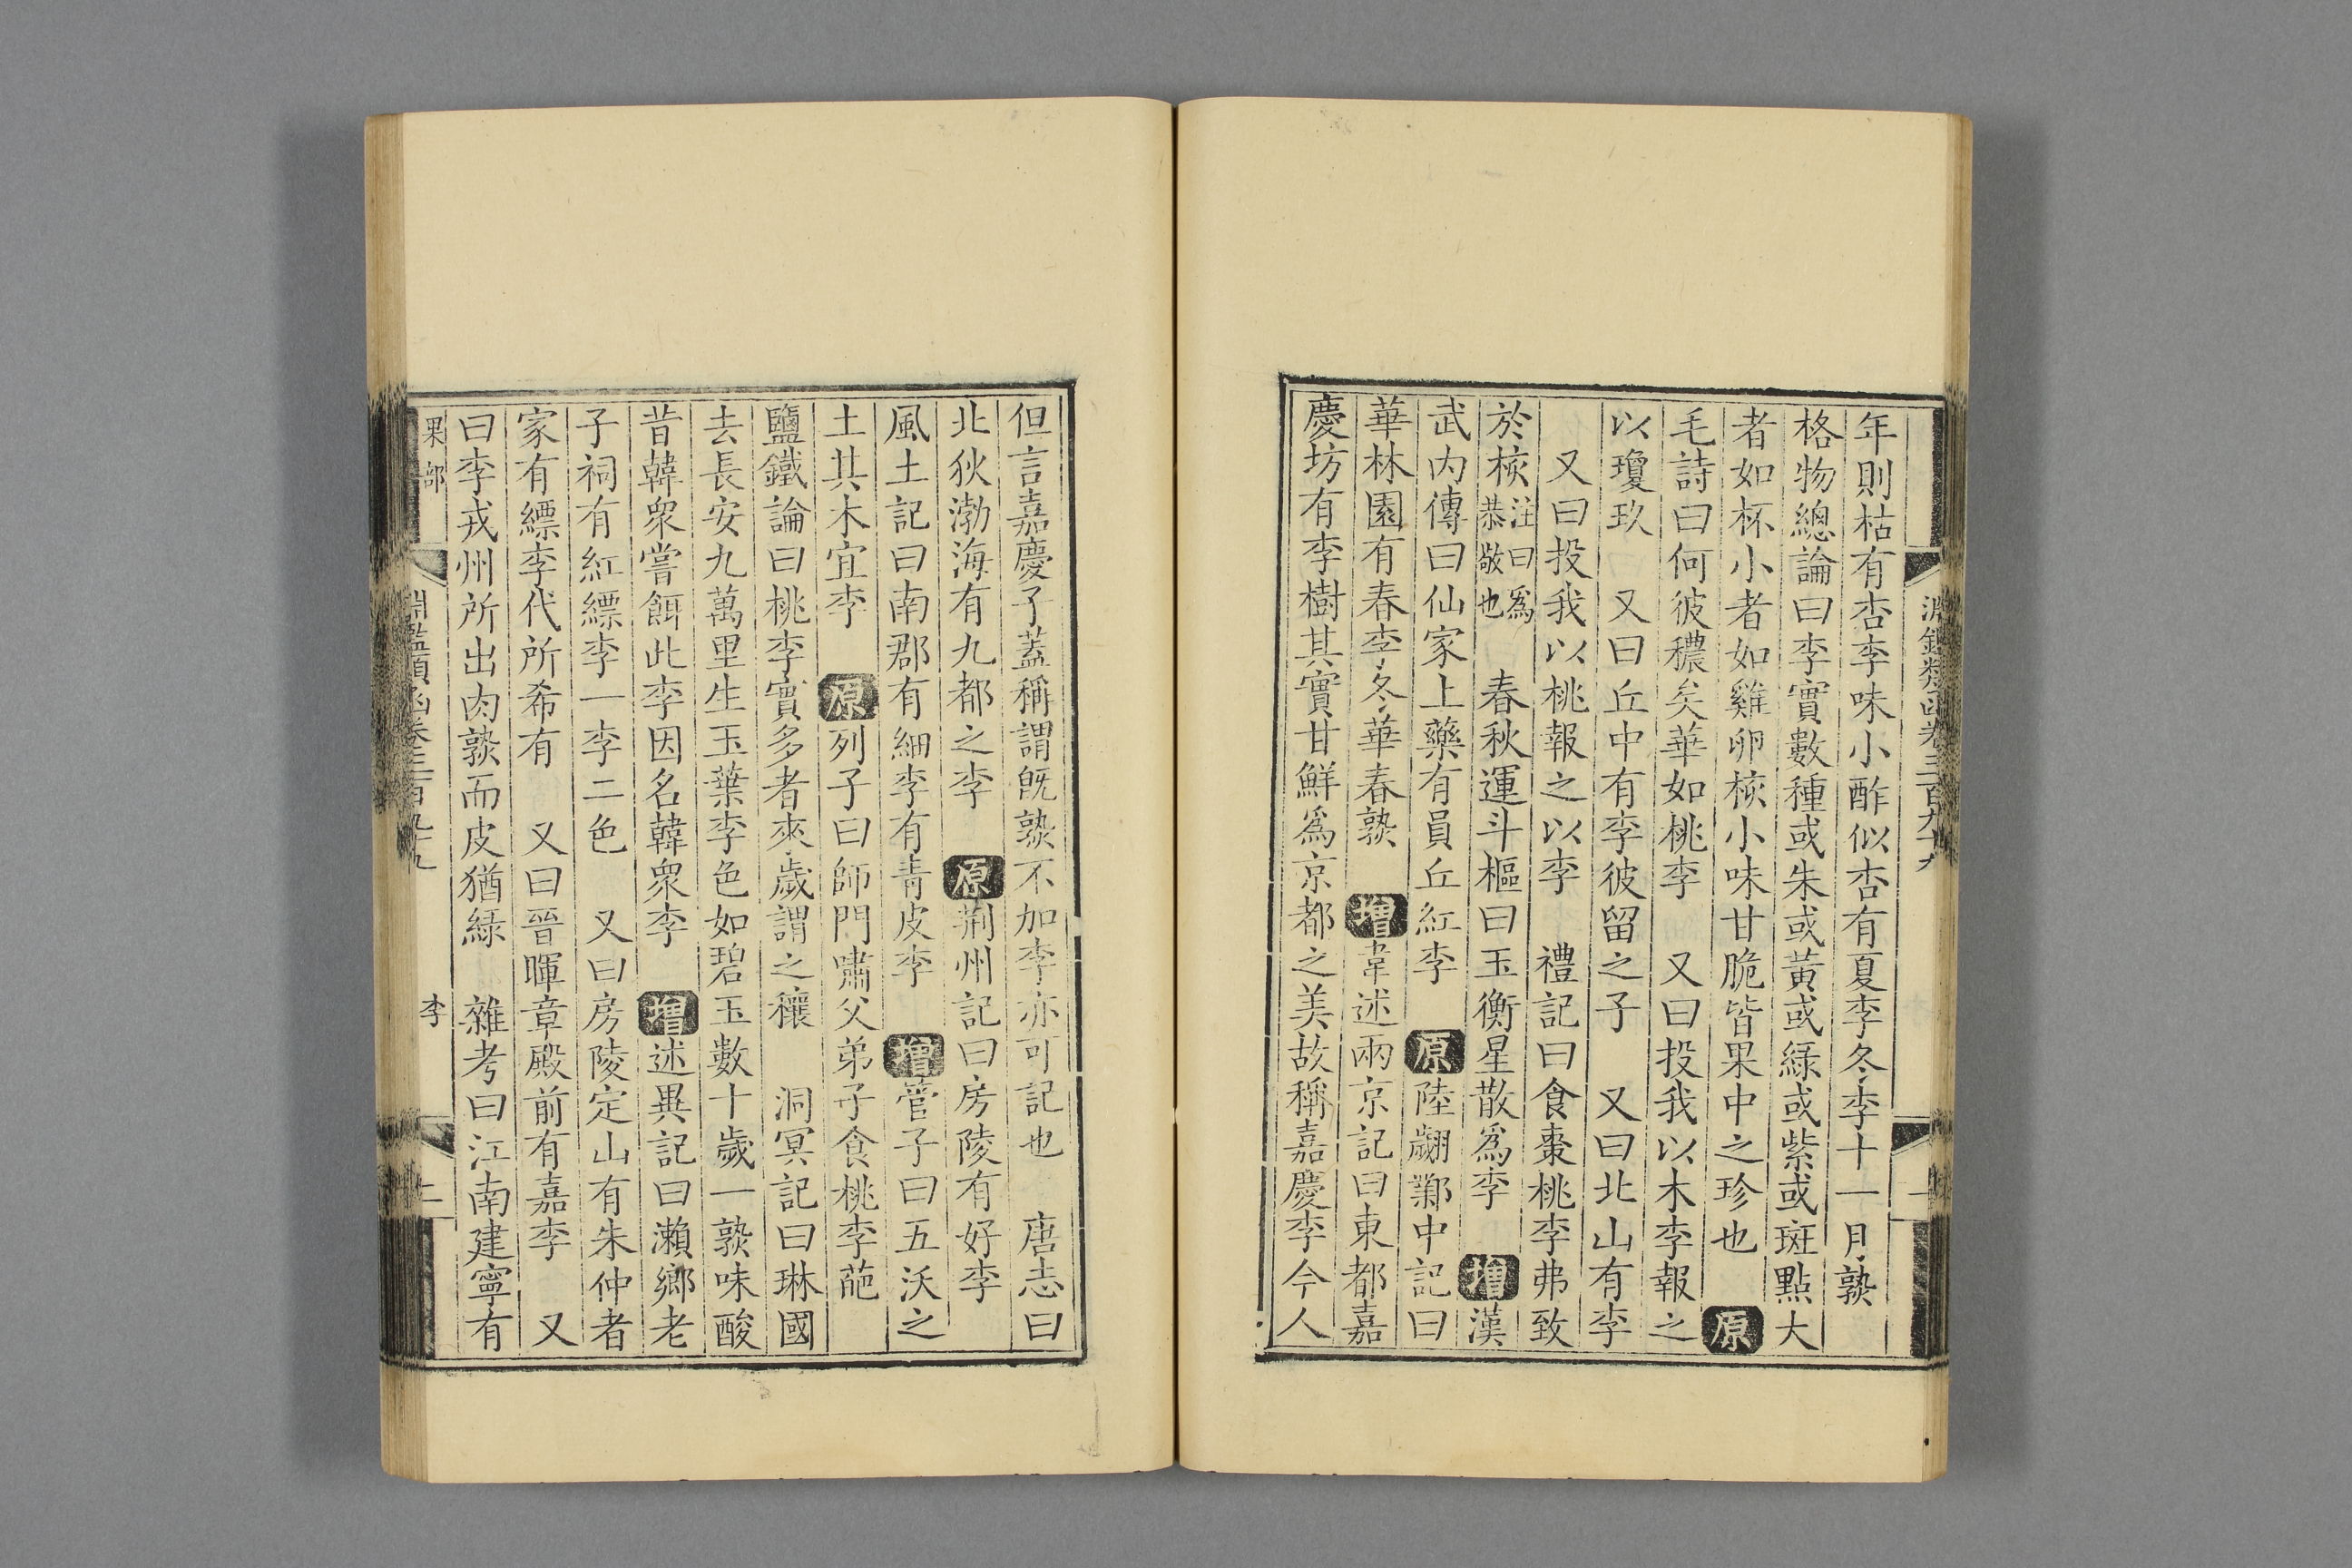 年則枯有杏李味小酢似杏有夏李冬李十一月熟
格物總論曰李實數種或朱或黃或綠或紫或斑點大
者如杯小者如雞卵核小味甘脆皆果中之珍也 原
毛詩曰何彼穠矣華如桃李 又曰投我以木李報之
以瓊玖 又曰丘中有李彼留之子 又曰北山有李
又曰投我以桃報之以李 禮記曰食棗桃李弗致
於核注曰爲恭敬也 春秋運斗樞曰玉衡星散爲李 增漢
武内傳曰仙家上藥有員丘紅李 原陸翽鄴中記曰
華林園有春李冬華春熟 增韋述兩京記曰東都嘉
慶坊有李樹其實甘鮮爲京都之美故稱嘉慶李今人
淵鑑類函卷三百九十九 一
但言嘉慶子蓋稱謂旣熟不加李亦可記也 唐志曰
北狄渤海有九都之李 原荆州記曰房陵有好李
風土記曰南郡有細李有青皮李 增管子曰五沃之
土其木宜李 原列子曰師門嘯父弟子食桃李葩
鹽鐵論曰桃李實多者來歲謂之穰 洞冥記曰琳國
去長安九萬里生玉葉李色如碧玉數十歲一熟味酸
昔韓衆嘗餌此李因名韓衆李 增述異記曰瀨鄉老
子祠有紅縹李一李二色 又曰房陵定山有朱仲者
家有縹李代所希有 又曰晉暉章殿前有嘉李 又
曰李戎州所出肉熟而皮猶綠 雜考曰江南建寧有
果部 淵鑑類函卷三百九十九 李 二